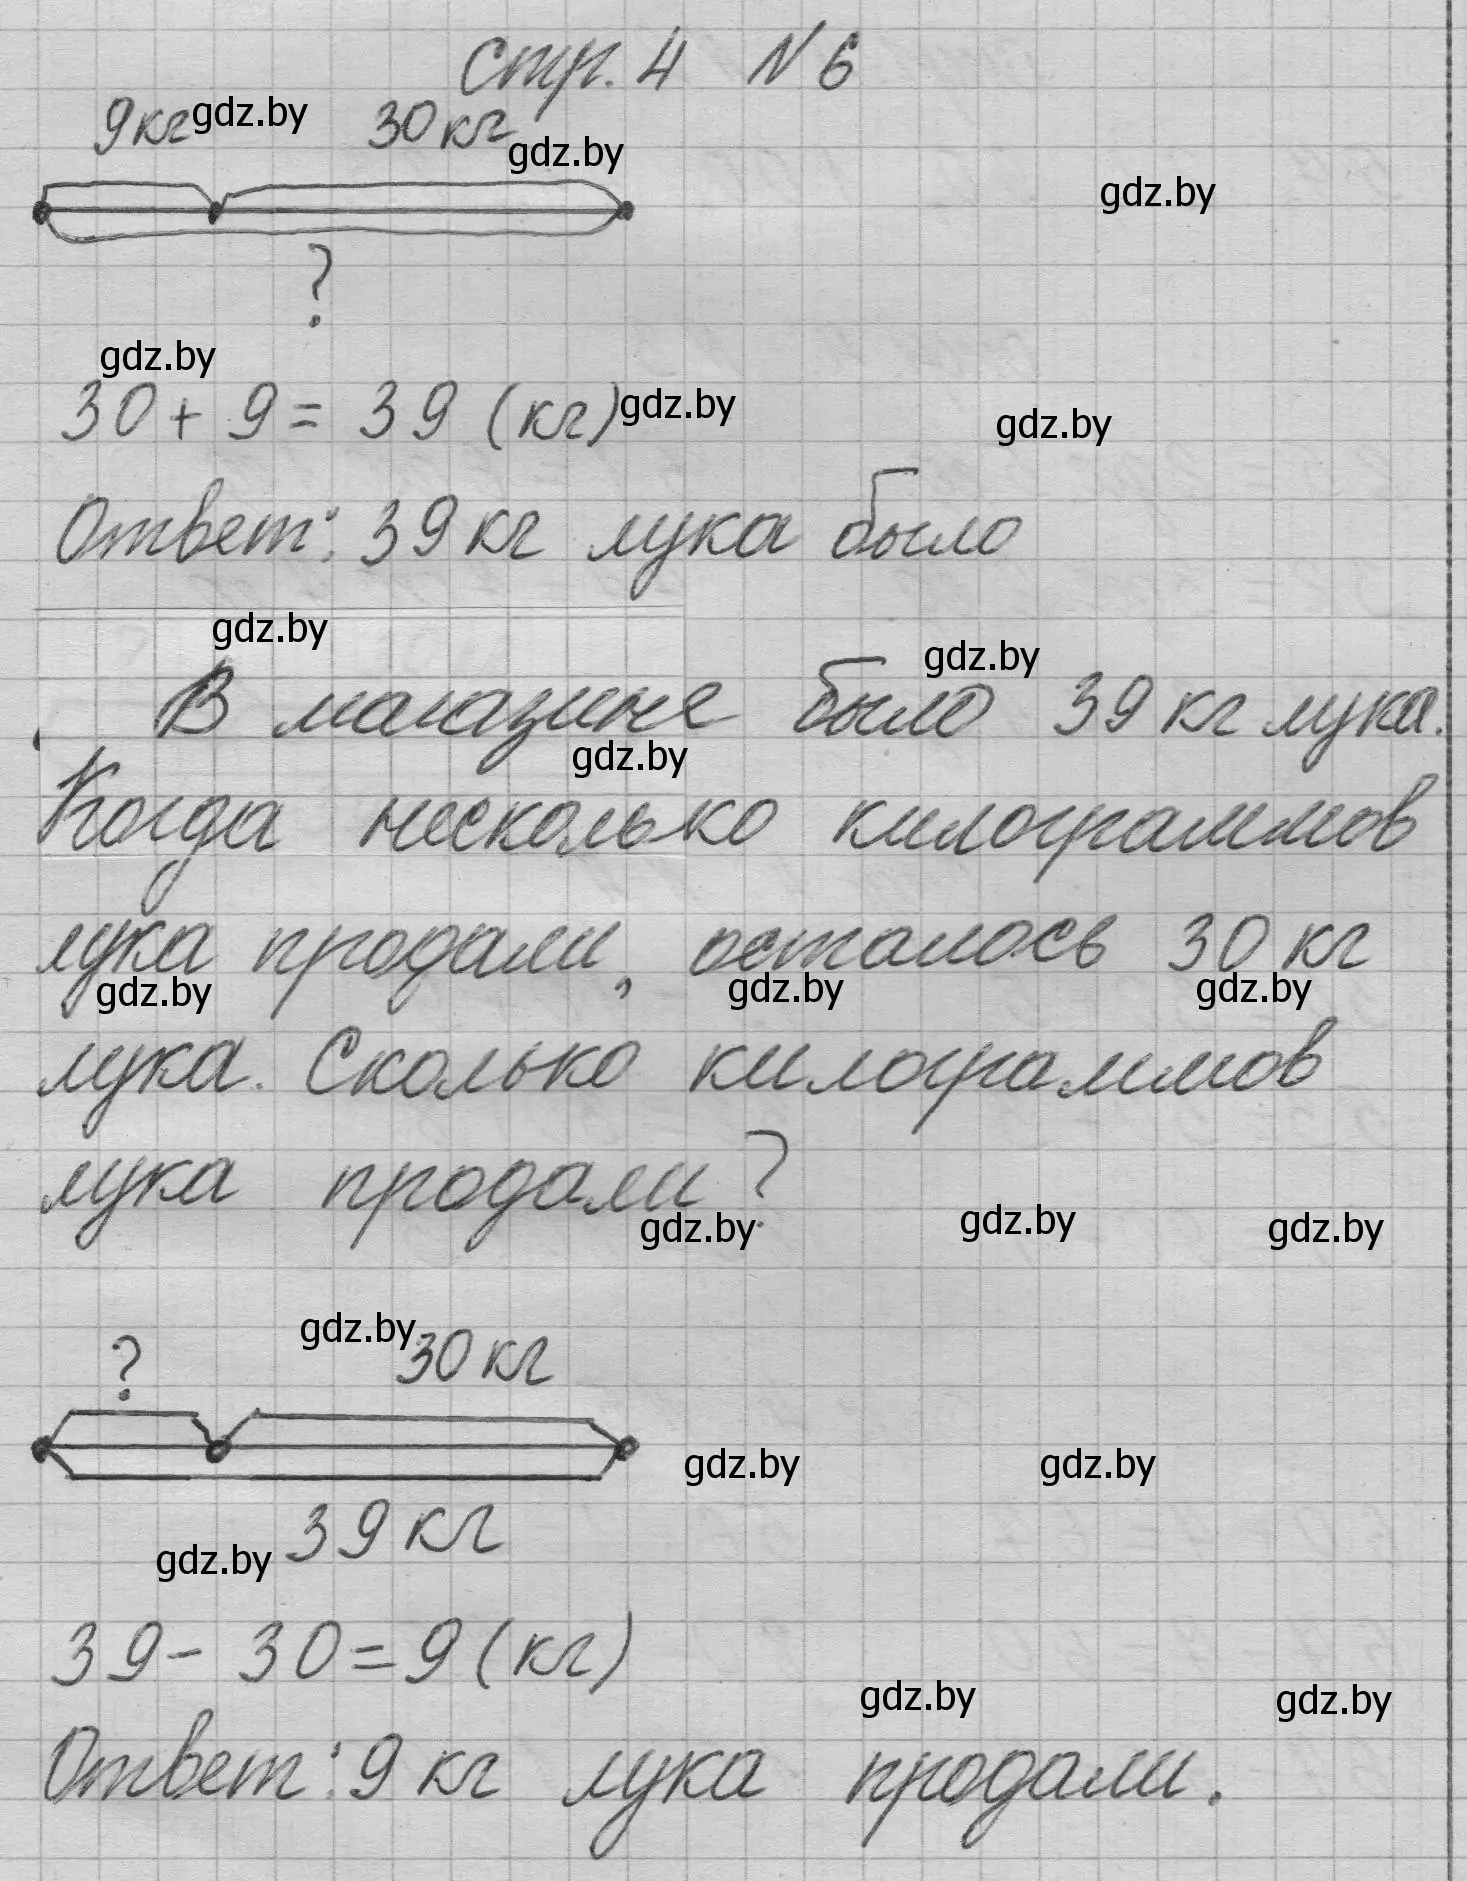 Стр. 4 № 6
9кг gdz.by 30кг gdz.by
gdz.by
?
gdz.by
30 + 9 = 39 (кг) gdz.by gdz.by
Ответ: 39 кг лука было
gdz.by gdz.by
В магазине было 39 кг лука.
gdz.by
Когда несколько килограммов
лука продали, осталось 30 кг
gdz.by gdz.by gdz.by
лука. Сколько килограммов
лука продали?
gdz.by gdz.by gdz.by
gdz.by
? 30 кг
gdz.by gdz.by
39 кг
gdz.by
39 - 30 = 9 (кг)
gdz.by gdz.by
Ответ: 9 кг лука продали.